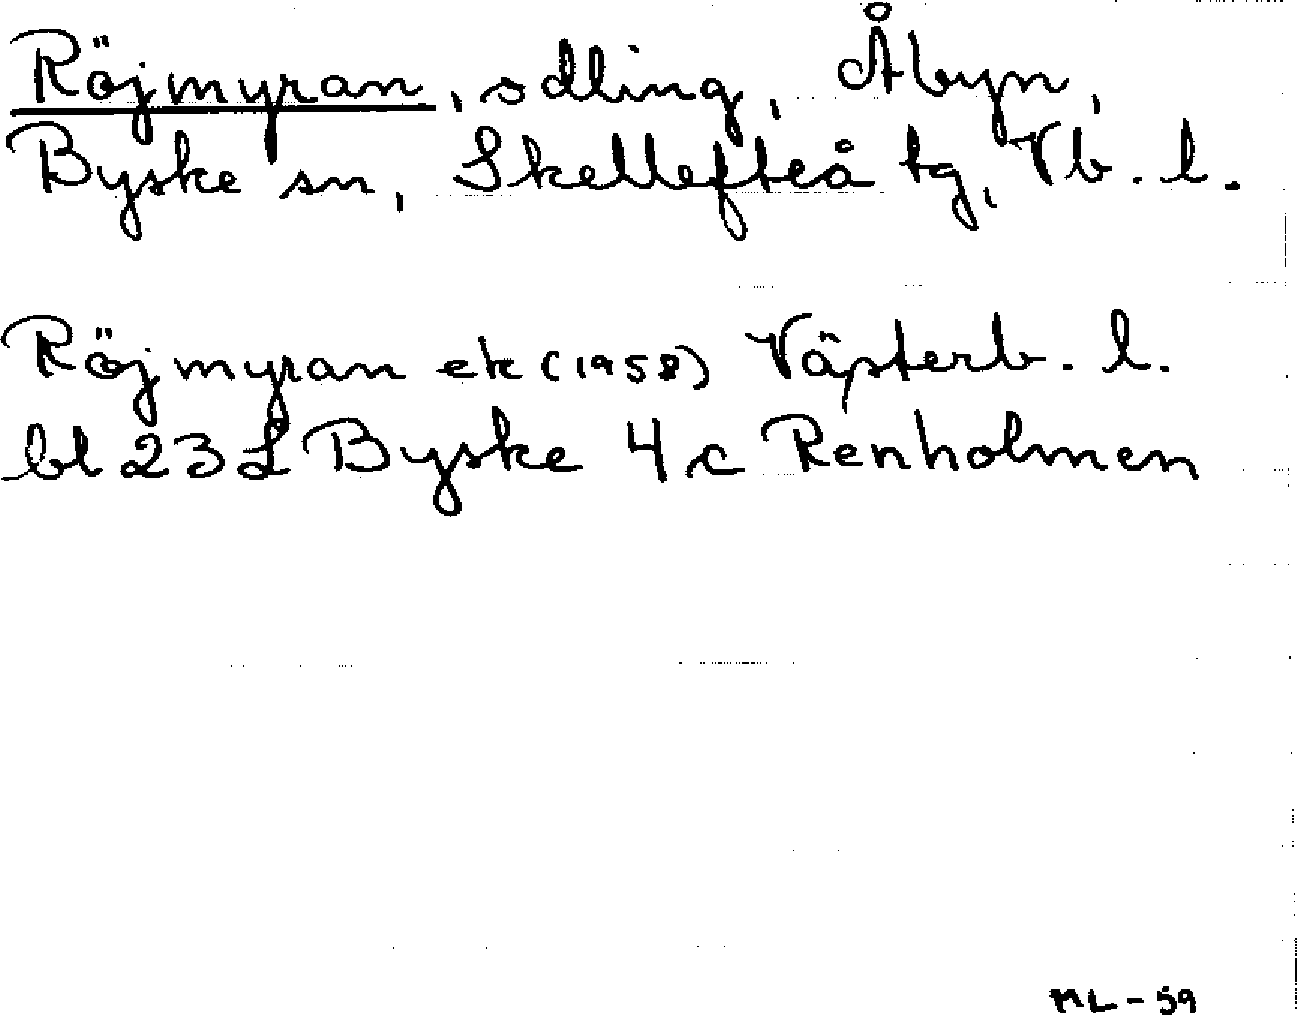 Röjmyran, odling, Åbyn,
Byske sn, Skellefteå tg, Vb. l.
Röjmyran ek (1958) Västerb. l.
bl 23 L Byske 4 c Renholmen
ML - 59